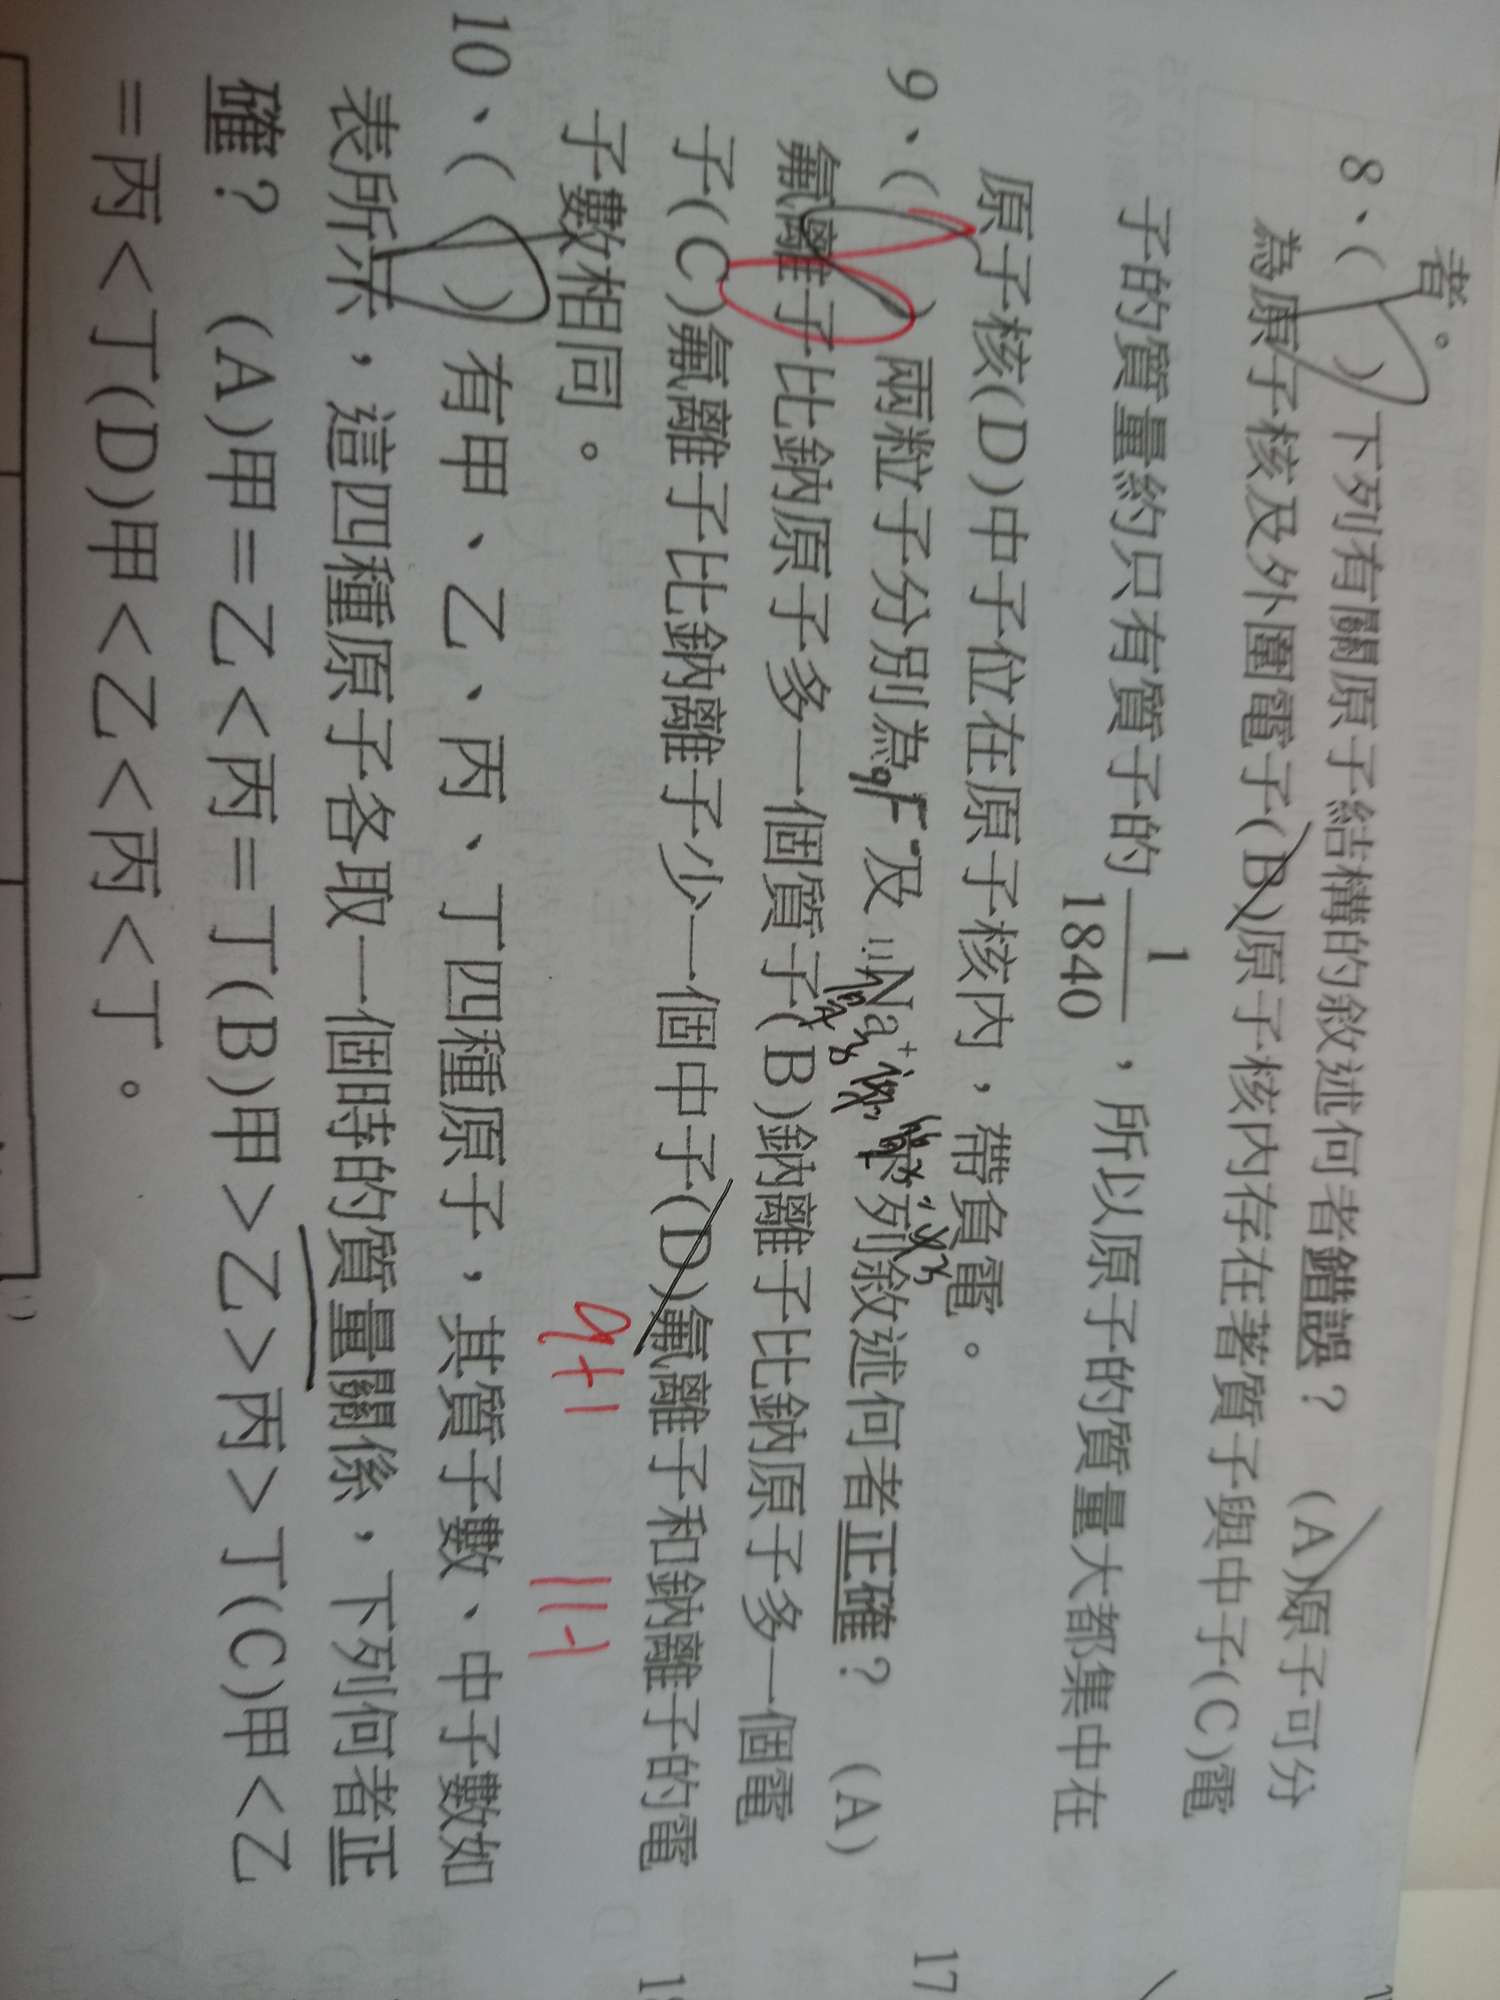 者。
8、( ) 下列有關原子結構的敘述何者錯誤? (A)原子可分
為原子核及外圍電子(B)原子核內存在著質子與中子(C)電
子的質量約只有質子的 1/1840 ,所以原子的質量大都集中在
原子核(D)中子位在原子核內,帶負電。
9、( ) 兩粒子分別為 9F⁻及 11Na⁺,下列敘述何者正確? (A)
氟離子比鈉原子多一個質子(B)鈉離子比鈉原子多一個電
子(C)氟離子比鈉離子少一個中子(D)氟離子和鈉離子的電
子數相同。
9+1 11-1
10、( ) 有甲、乙、丙、丁四種原子,其質子數、中子數如
表所示,這四種原子各取一個時的質量關係,下列何者正
確? (A)甲=乙<丙=丁(B)甲>乙>丙>丁(C)甲<乙
=丙<丁(D)甲<乙<丙<丁。
17